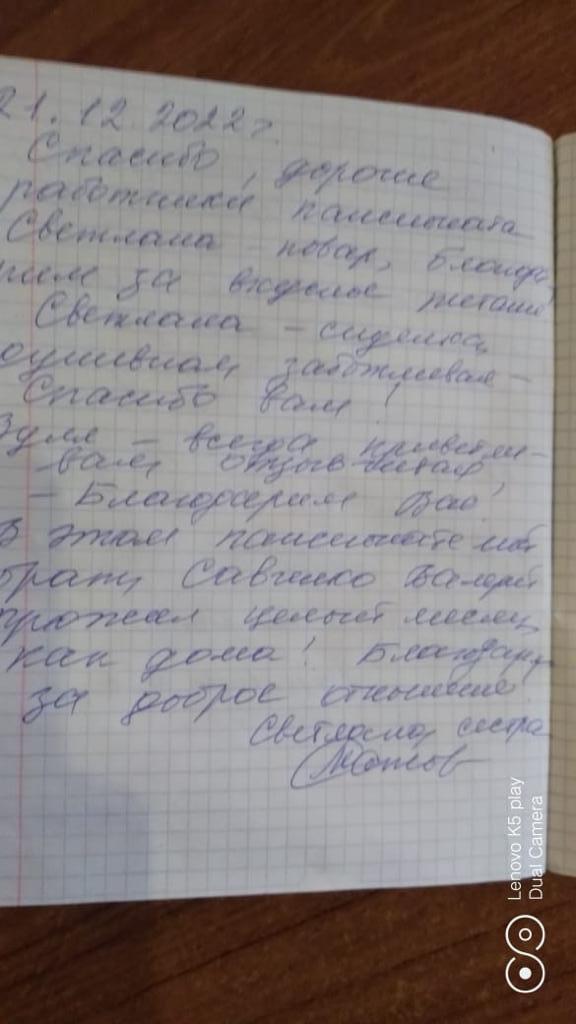 21.12.2022г.
Спасибо, дорогие
работники пансионата
Светлана - повар, благода-
рим за вкусное питание!
Светлана - сиделка,
душевная, заботливая -
Спасибо вам!
Зуля - всегда приветли-
вая, отзывчивая,
- Благодарим Вас!
В этом пансионате мой
брат, Савченко Валерий
прожил целый месяц,
как дома! Благодарю
за доброе отношение.
Светлана, сестра
Lenovo K5 play
Dual Camera